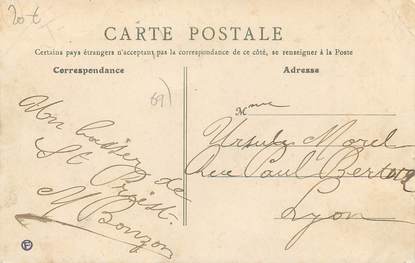 20 €
CARTE POSTALE
Certains pays étrangers n'acceptant pas la correspondance de ce côté, se renseigner à la Poste
Correspondance
Adresse
69)
Un baiser de
St Priest.
M Bonzon
Mme
Ursule Morel
Rue Paul Bert
Lyon